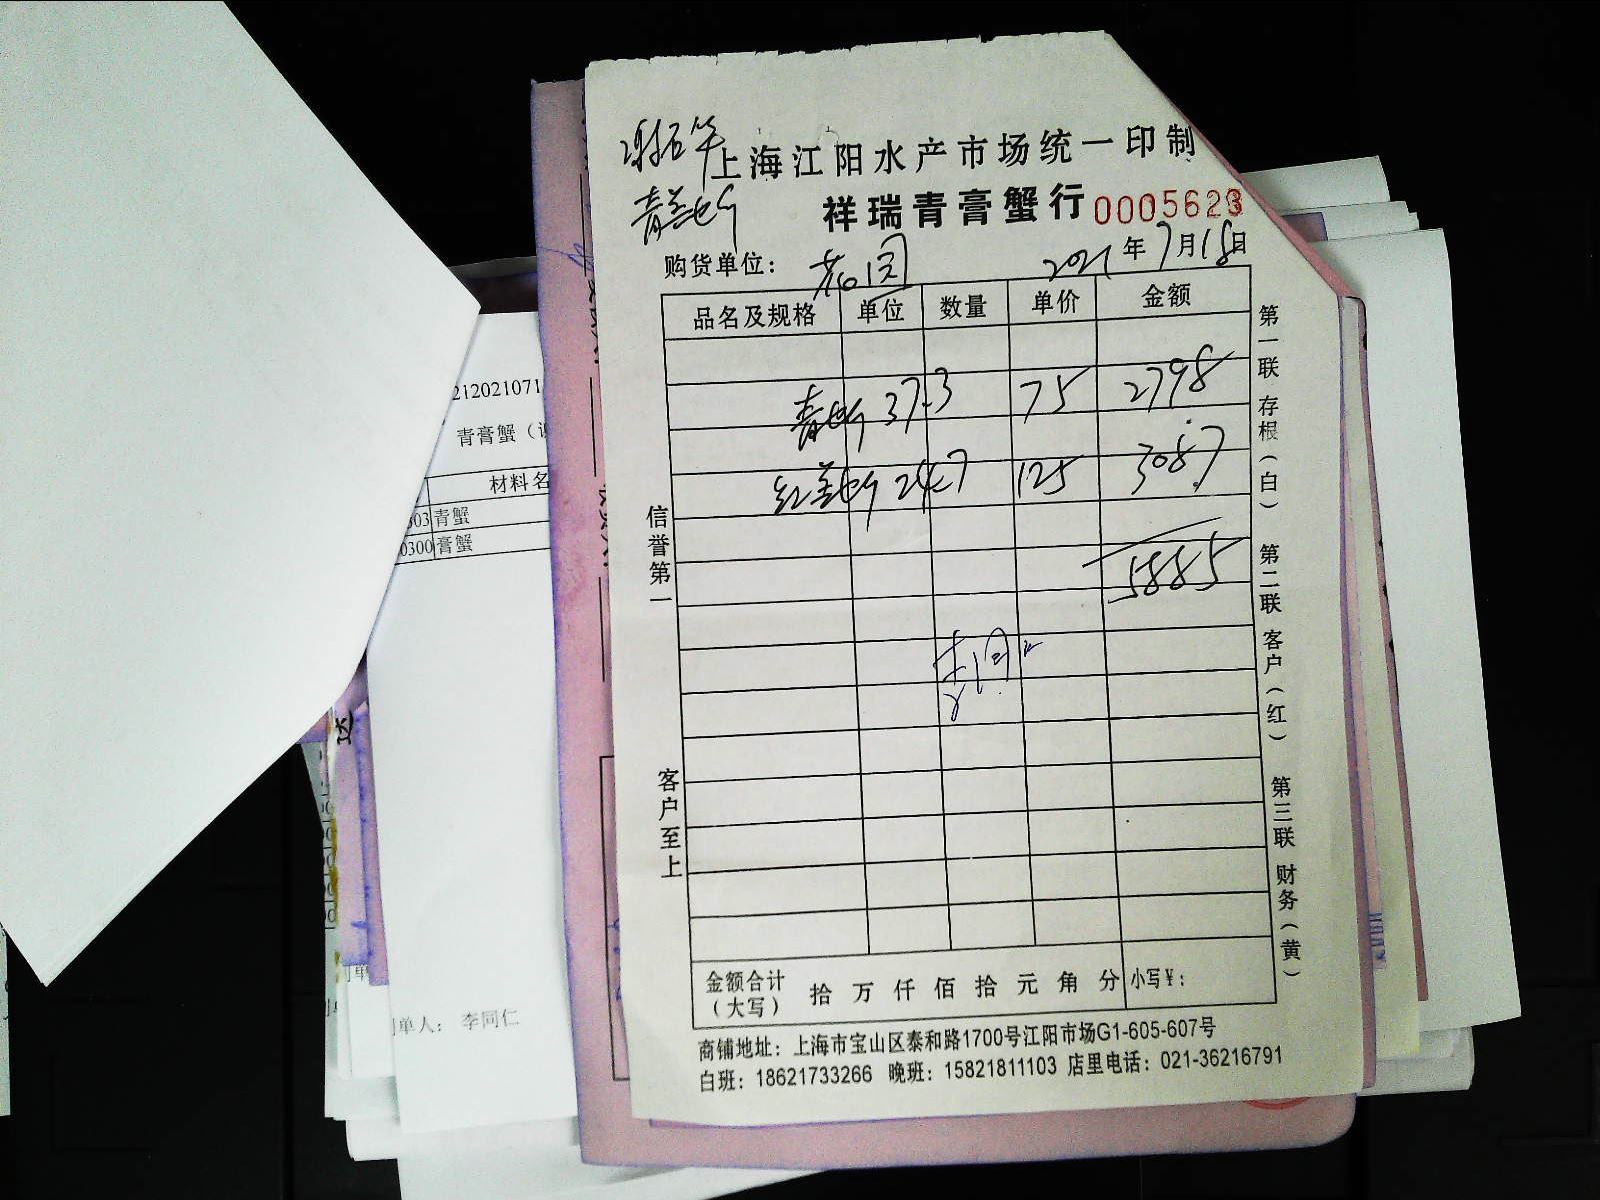 上海江阳水产市场统一印制
祥瑞青膏蟹行 0005623
购货单位： 2021年7月18日
品名及规格 单位 数量 单价 金额
37.3 75 2798
24.7 125 3087
5885
信誉第一
客户至上
第一联 存根（白） 第二联 客户（红） 第三联 财务（黄）
金额合计（大写） 拾 万 仟 佰 拾 元 角 分 小写¥：
商铺地址：上海市宝山区泰和路1700号江阳市场G1-605-607号
白班：18621733266 晚班：15821811103 店里电话：021-36216791
212021071
青膏蟹（
材料名
303 青蟹
0300 膏蟹
单人： 李同仁